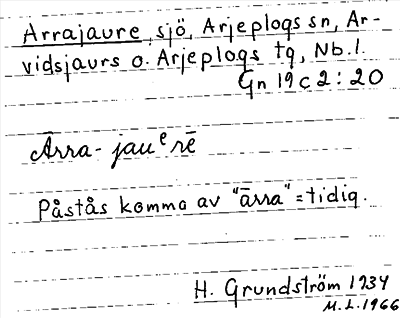 Arrajaure, sjö, Arjeplogs sn, Ar-
vidsjaurs o. Arjeplogs tg, Nb. l.
Gn 19 c 2 : 20
Ārra- jauᵉrē
Påstås komma av "ārra" = tidig.
H. Grundström 1934
M.L. 1966